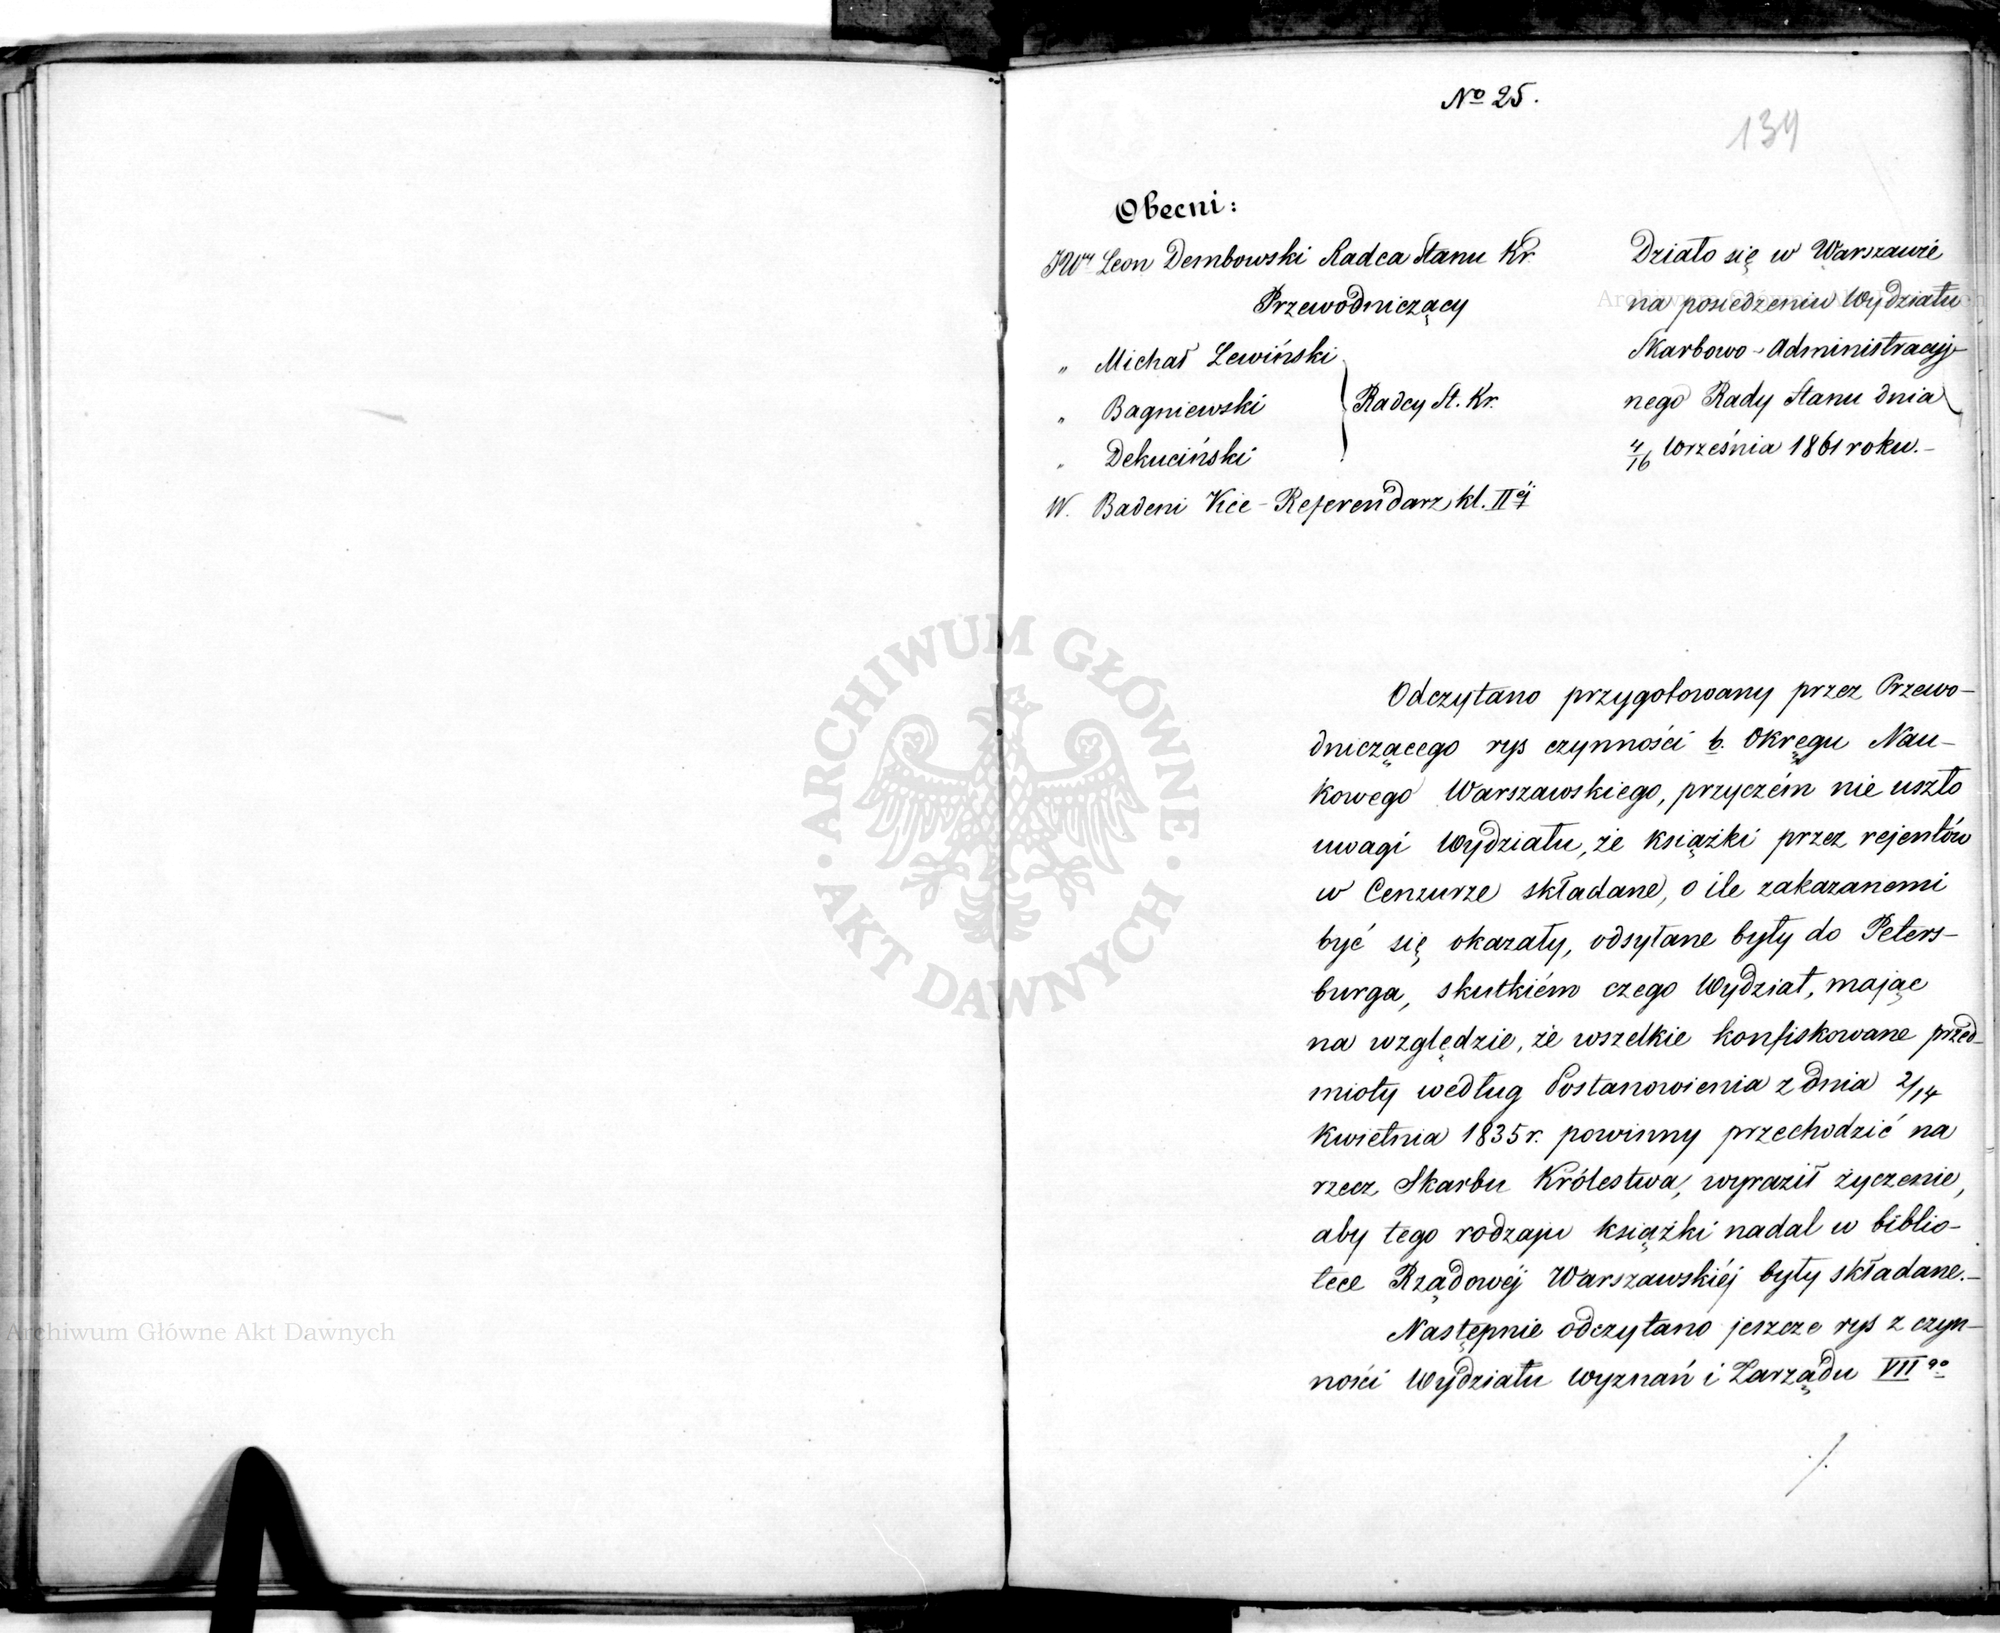 No 25.
134
Obecni:
JWny Leon Dembowski Radca Stanu Kr.
Przewodniczący
„ Michał Lewiński
„ Bagniewski
Radcy St. Kr.
„ Dekuciński
W. Badeni Vice-Referendarz kl. IIéj
Działo się w Warszawie
na posiedzeniu Wydziału
Skarbowo-Administracyj-
nego Rady Stanu dnia
4/16 Września 1861 roku.-
Odczytano przygotowany przez Przewo-
dniczącego rys czynności b. Okręgu Nau-
kowego Warszawskiego, przyczém nie uszło
uwagi Wydziału, że książki przez rejentów
w Cenzurze składane, o ile zakazanemi
być się okazały, odsyłane były do Peters-
burga, skutkiém czego Wydział, mając
na względzie, że wszelkie konfiskowane przed-
mioty według Postanowienia z dnia 2/14
Kwietnia 1835 r. powinny przechodzić na
rzecz Skarbu Królestwa, wyraził życzenie,
aby tego rodzaju książki nadal w biblio-
tece Rządowéj Warszawskiéj były składane.-
Następnie odczytano jeszcze rys z czyn-
ności Wydziału Wyznań i Zarządu VIIgo
./.
ARCHIWUM GŁÓWNE AKT DAWNYCH
Archiwum Główne Akt Dawnych
Archiwum Główne Akt Dawnych